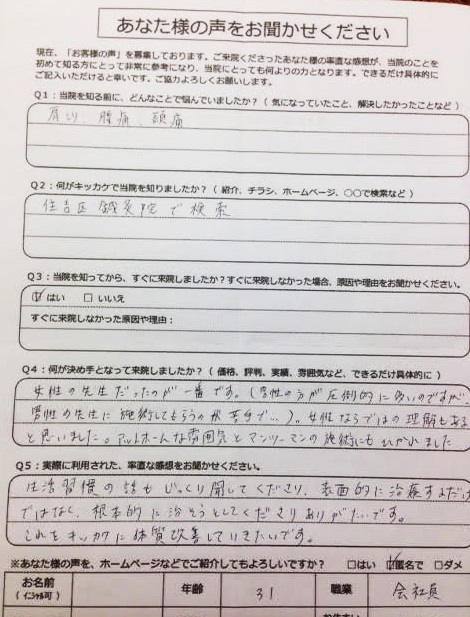 あなた様の声をお聞かせください
現在、「お客様の声」を募集しております。ご来院くださったあなた様の率直な感想が、当院のことを
初めて知る方にとって非常に参考になり、当院にとっても何よりの力となります。できるだけ具体的に
ご記入いただけると幸いです。ご協力よろしくお願いします。
Q1：当院を知る前に、どんなことで悩んでいましたか？（ 気になっていたこと、解決したかったことなど ）
肩こり、腰痛、頭痛
Q2：何がキッカケで当院を知りましたか？（ 紹介、チラシ、ホームページ、〇〇で検索など ）
住吉区 鍼灸院で検索
Q3：当院を知ってから、すぐに来院しましたか？すぐに来院しなかった場合、原因や理由をお聞かせください。
☑ はい　□ いいえ
すぐに来院しなかった原因や理由：
Q4：何が決め手となって来院しましたか？（ 価格、評判、実績、雰囲気など、できるだけ具体的に ）
女性の先生だったのが一番です。（男性の方が圧倒的に多いのですが、
男性の先生に施術してもらうのが苦手で…）。女性ならではの理解もある
と思いました。アットホームな雰囲気とマンツーマンの施術にもひかれました
Q5：実際に利用された、率直な感想をお聞かせください。
生活習慣の話もじっくり聞してくださり、表面的に治療するだけ
ではなく、根本的に治そうとしてくださりありがたいです。
これをキッカケに体質改善していきたいです。
※あなた様の声を、ホームページなどでご紹介してもよろしいですか？　□はい　☑匿名で　□ダメ
お名前（イニシャル可）　年齢　31　職業　会社員